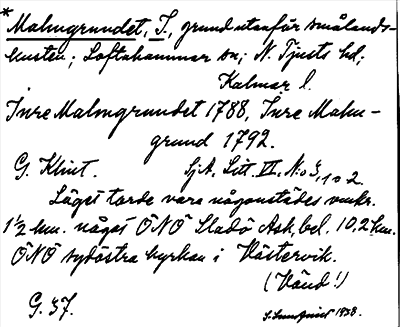 * Malmgrundet, I., grund utanför smålands-
kusten; Loftahammar sn; N. Tjusts hd;
Kalmar l.
Inre Malmgrundet 1788, Inre Malm-
grund 1792.
G. Klint. SjA. Litt. VI. N:o 3, 1 o 2.
Läget torde vara någonstädes omkr.
1 1/2 km. något ÖNÖ Sladö Ask, bel. 10,2 km.
ÖNÖ sydöstra kyrkan i Västervik.
(Vänd!)
G. 37. 1938.